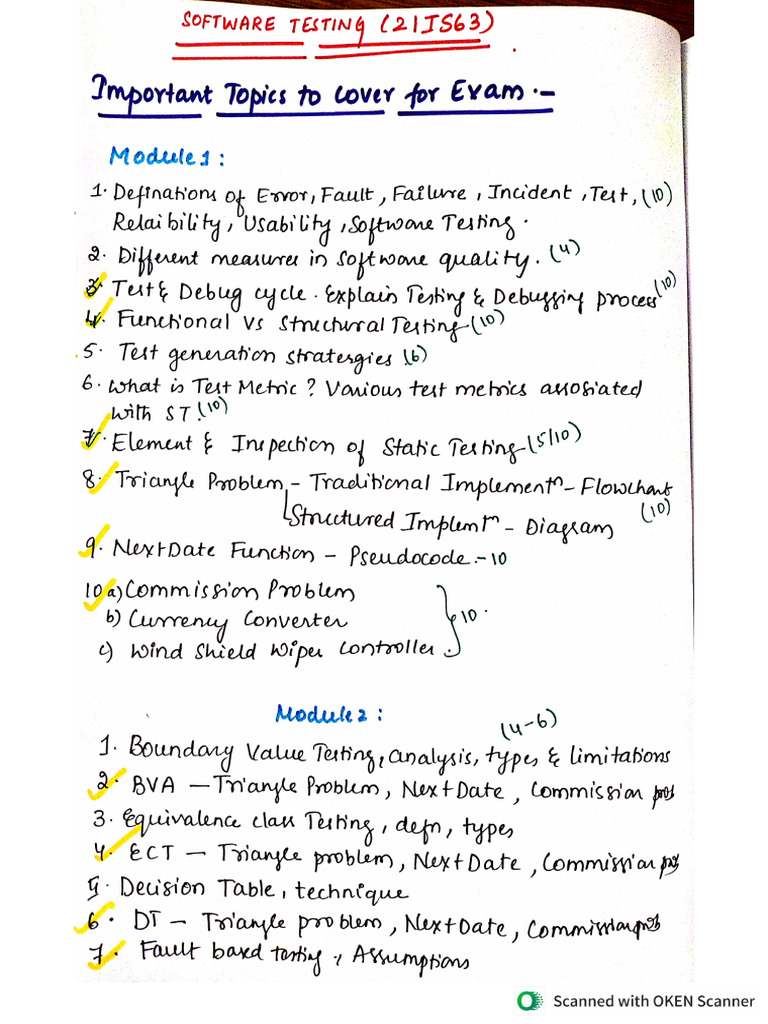 SOFTWARE TESTING (21IS63)
Important Topics to cover for Exam :-
Module 1 :
1. Definations of Error, Fault, Failure, Incident, Test, (10)
Relaibility, Usability, Software Testing.
2. Different measures in software quality. (4)
3. Test & Debug cycle. Explain Testing & Debugging process (10)
4. Functional Vs Structural Testing (10)
5. Test generation stratergies (6)
6. What is Test Metric ? Various test metrics assosiated
with ST. (10)
7. Element & Inspection of Static Testing (5/10)
8. Triangle Problem - Traditional Implementn - Flowchart
Structured Implemtn - Diagram (10)
9. NextDate Function - Pseudocode.-10
10 a) Commission Problem
b) Currency Converter
c) Wind Shield Wiper Controller. } 10.
Module 2 :
1. Boundary Value Testing, analysis, types & limitations (4-6)
2. BVA - Triangle Problem, NextDate, Commission
3. Equivalence class Testing, defn, types
4. ECT - Triangle problem, NextDate, Commission
5. Decision Table, technique
6. DT - Triangle problem, NextDate, Commission
7. Fault based testing, Assumptions
Scanned with OKEN Scanner